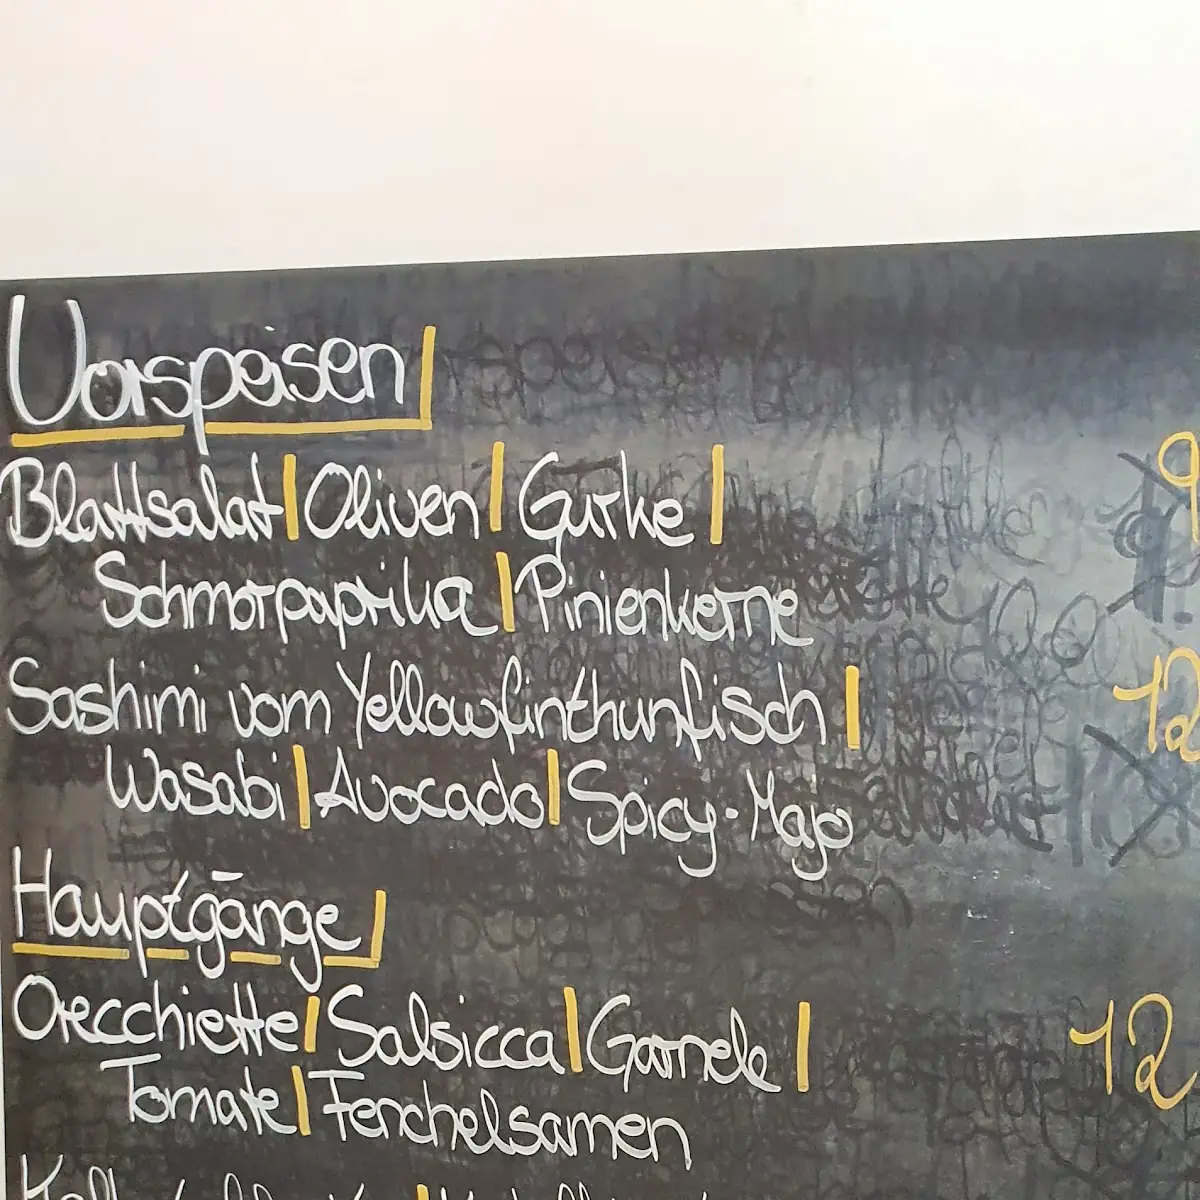 Vorspeisen
Blattsalat | Oliven | Gurke | 9
Schmorpaprika | Pinienkerne
Sashimi vom Yellowfinthunfisch | 12
Wasabi | Avocado | Spicy-Mayo
Hauptgänge
Orecchiette | Salsicca | Garnele | 12
Tomate | Fenchelsamen